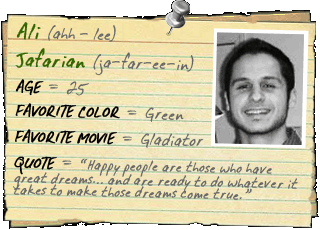 Ali (ahh - lee)
Jafarian (ja-far-ee-in)
AGE = 25
FAVORITE COLOR = Green
FAVORITE MOVIE = Gladiator
QUOTE = "Happy people are those who have
great dreams... and are ready to do whatever it
takes to make those dreams come true."